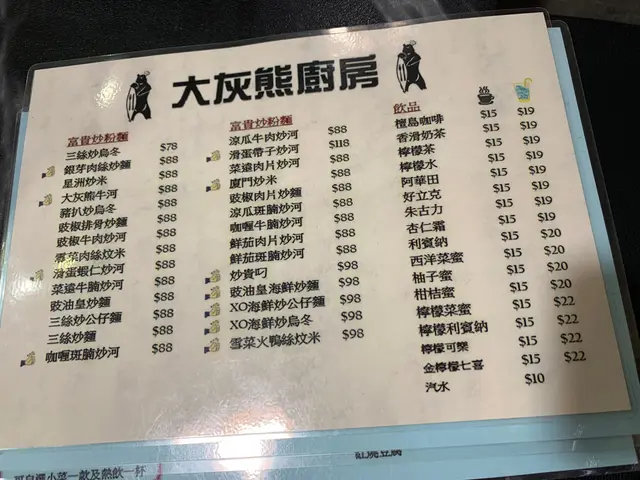 大灰熊廚房
富貴炒粉麵
三絲炒烏冬 $78
銀芽肉絲炒麵 $88
星洲炒米 $88
大灰熊牛河 $88
豬扒炒烏冬 $88
豉椒排骨炒麵 $88
豉椒牛肉炒河 $88
雪菜肉絲炆米 $88
滑蛋蝦仁炒河 $88
菜遠牛腩炒河 $88
豉油皇炒麵 $88
三絲炒公仔麵 $88
三絲炒麵 $88
咖喱斑腩炒河 $88
富貴炒粉麵
涼瓜牛肉炒河 $88
滑蛋帶子炒河 $118
菜遠肉片炒河 $88
廈門炒米 $88
豉椒肉片炒麵 $88
涼瓜斑腩炒河 $88
咖喱牛腩炒河 $88
鮮茄肉片炒河 $88
鮮茄斑腩炒河 $88
炒貴叼 $98
豉油皇海鮮炒麵 $98
XO海鮮炒公仔麵 $98
XO海鮮炒烏冬 $98
雪菜火鴨絲炆米 $98
飲品
檀島咖啡 $15 $19
香滑奶茶 $15 $19
檸檬茶 $15 $19
檸檬水 $15 $19
阿華田 $15 $19
好立克 $15 $19
朱古力 $15 $19
杏仁霜 $15 $20
利賓納 $15 $20
西洋菜蜜 $15 $20
柚子蜜 $15 $20
柑桔蜜 $15 $22
檸檬菜蜜 $15 $22
檸檬利賓納 $15 $22
檸檬可樂
金檸檬七喜
汽水 $10
可自選小菜一款及熱飲一杯
紅燒豆腐